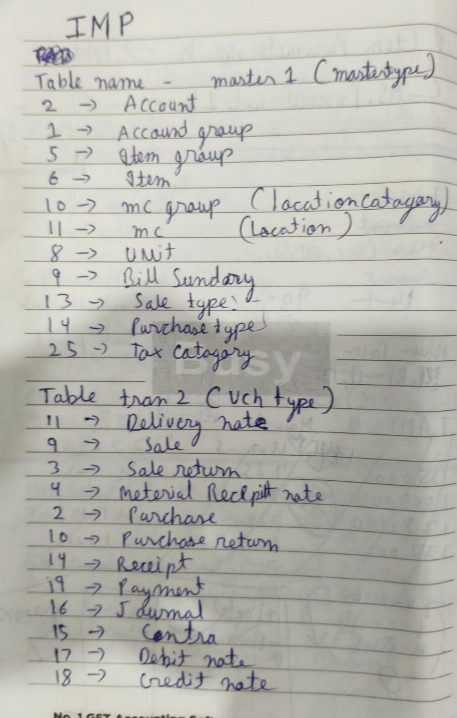 IMP
Table name - master 1 (mastertype)
2 → Account
1 → Account group
5 → Item group
6 → Item
10 → mc group (lacation catagary)
11 → mc (Location)
8 → UNit
9 → Bill Sundary
13 → Sale type
14 → Purchase type
25 → Tax catagary
Busy
Table tran 2 (Vch type)
11 → Delivery nate
9 → Sale
3 → Sale return
4 → Meterial Receipt nate
2 → Purchase
10 → Purchase return
14 → Receipt
19 → Payment
16 → Journal
15 → Contra
17 → Debit nate
18 → Credit nate
No. 1 GST Accounting